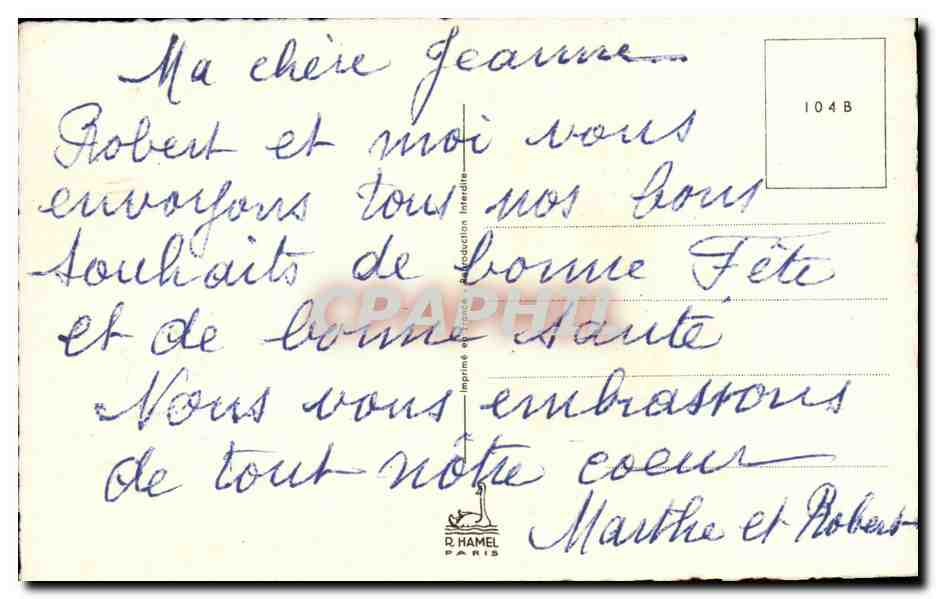 Ma chère Jeanne
Robert et moi vous
envoyons tous nos bons
souhaits de bonne Fête
et de bonne santé
Nous vous embrassons
de tout nôtre coeur
Marthe et Robert
104 B
Imprimé en France - Reproduction Interdite
CPAPHIL
R. HAMEL
PARIS